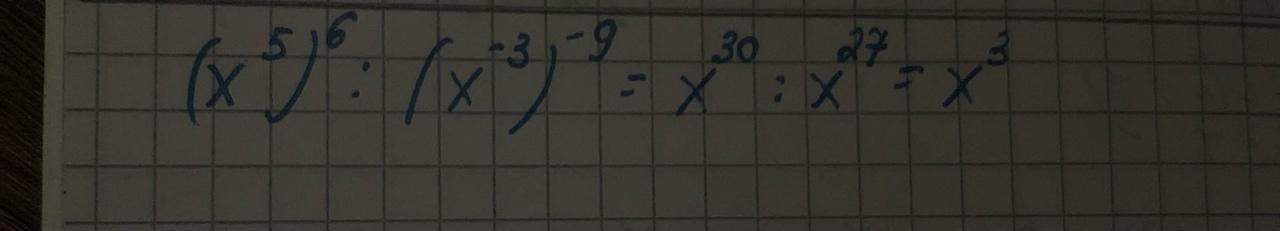 (x⁵)⁶ : (x⁻³)⁻⁹ = x³⁰ : x²⁷ = x³